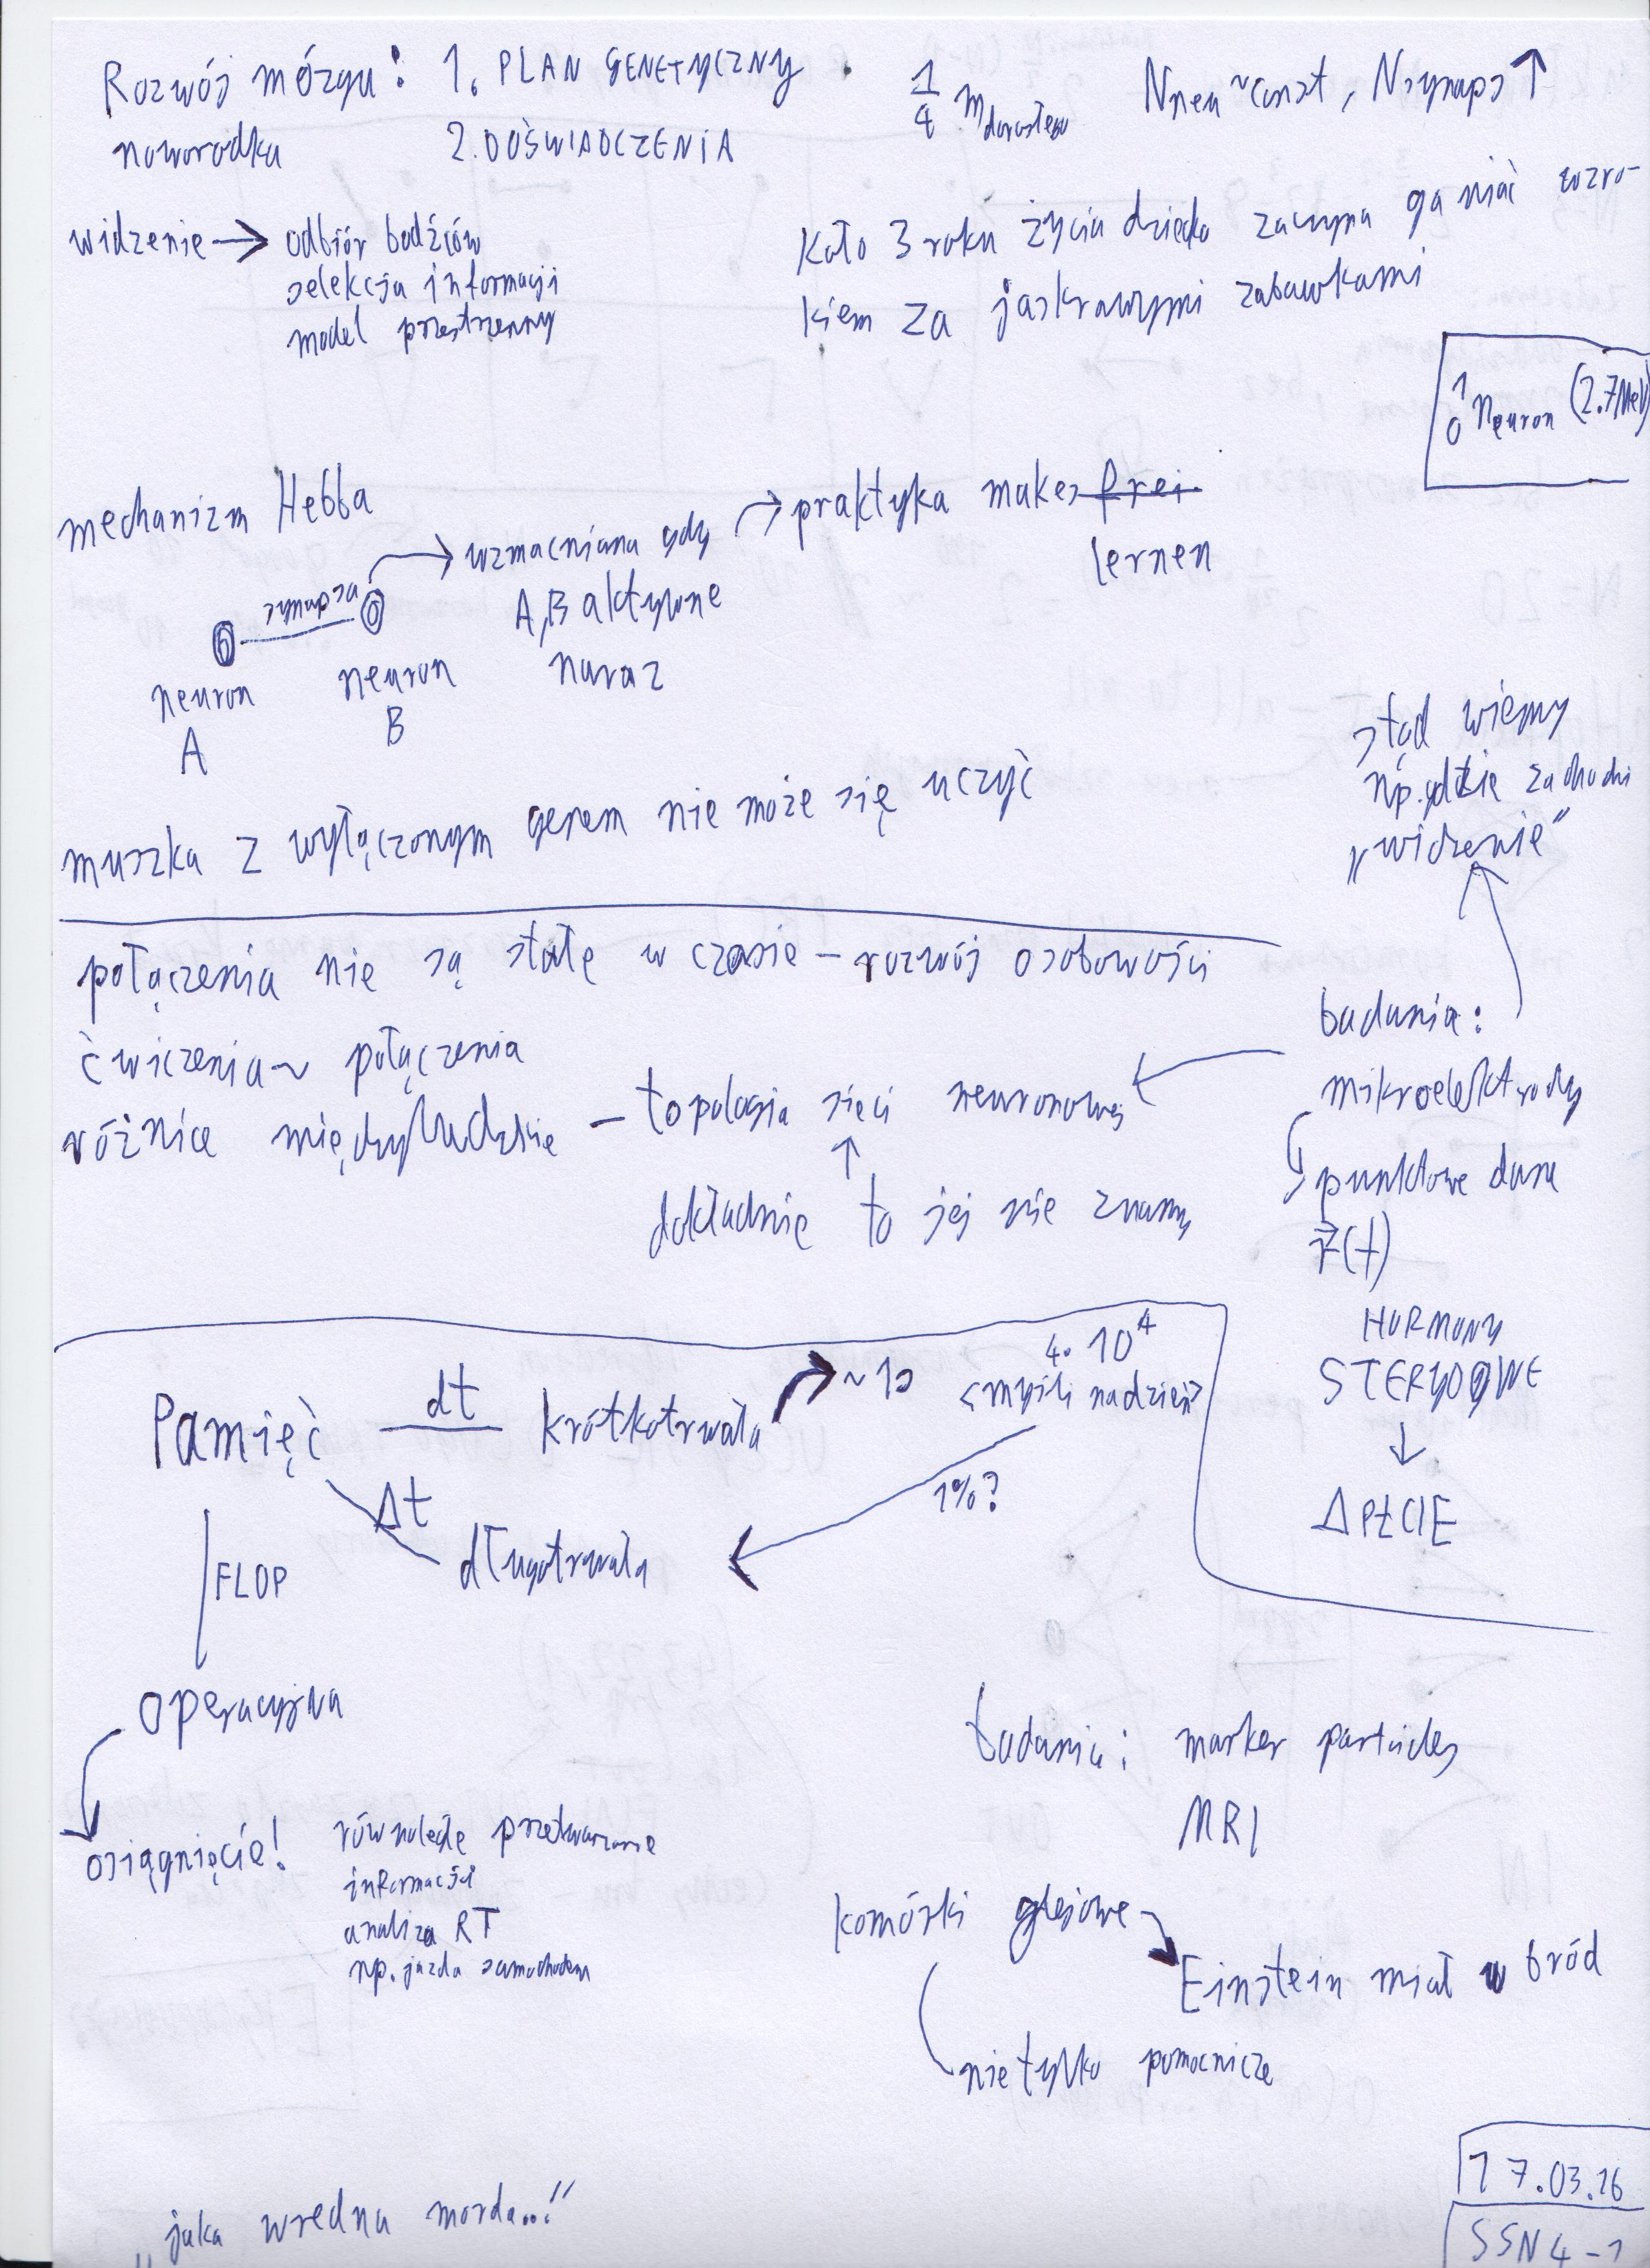 Rozwój mózgu: 1. PLAN GENETYCZNY
noworodka 2. DOŚWIADCZENIA
1/4 m dorosłego Nneu ~const, Nsynaps ↑
widzenie → odbiór bodźców
selekcja informacji
model przestrzenny
Koło 3 roku życia dziecko zaczyna ganiać wzro-
kiem za jaskrawymi zabawkami
1 0 neuron (2.7MeV)
mechanizm Hebba
synapsa
neuron A
neuron B
wzmacniana gdy
A,B aktywne
naraz
→ praktyka makes frei
lernen
muszka z wyłączonym genem nie może się uczyć
stąd wiemy
np. gdzie zachodzi
„widzenie"
połączenia nie są stałe w czasie – rozwój osobowości
ćwiczenia ~ połączenia
różnice międzyludzkie – topologia sieci neuronowej
↑
dokładnie to jej nie znamy
badania:
mikroelektrody
punktowe dane
r(t)
HORMONY
STERYDOWE
↓
Δ PŁCIE
Pamięć dt krótkotrwała → ~1s
4·10⁴
<myśli na dzień>
1%?
Δt
długotrwała
FLOP
operacyjna
osiągnięcie! równoległe przetwarzanie
informacji
analiza RT
np. jazda samochodem
badania: marker particles
MRI
komórki glejowe → Einstein miał w bród
nie tylko pomocnicze
„jaka wredna morda..!"
17.03.16
SSN 4-1